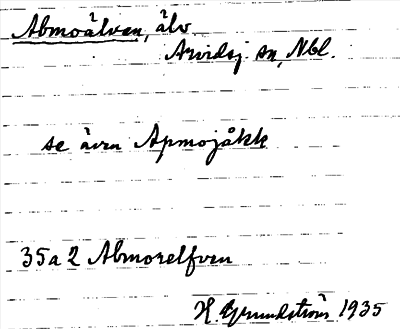 Abmoälven, älv
Arvidsj. sn, Nbl.
se även Apmojåkk
35a2 Abmorelfven
H. Grundström 1935